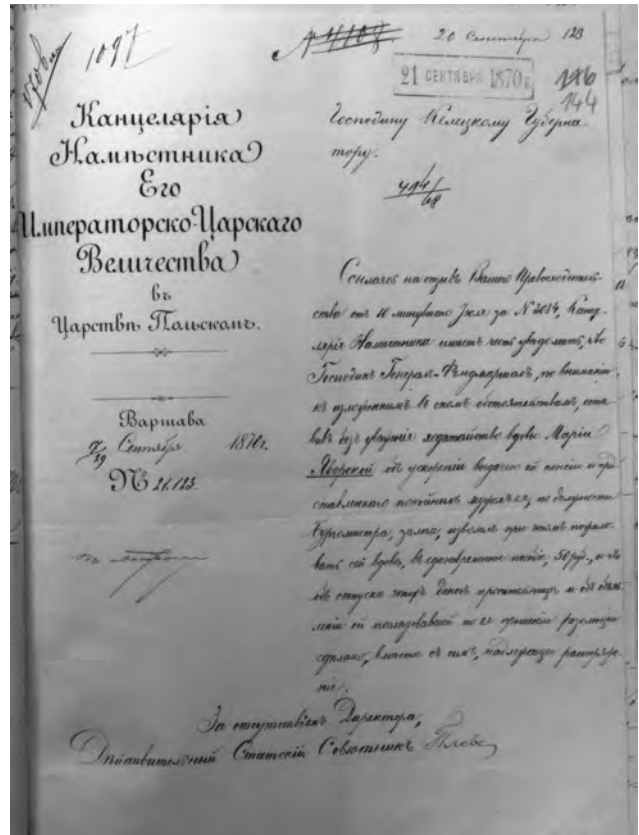 1097
20 Сентября 123
21 СЕНТЯБРЯ 1870 г.
146
144
Канцелярія
Намѣстника
Его
Императорско-Царскаго
Величества
въ
Царствѣ Польскомъ.
Варшава
Сентября 1870 г.
№ 21.123
Господину Кѣлецкому Губерна-
тору.
494/68
Ссылаясь на отзывъ Вашего Превосходитель-
ства отъ 10 минувшаго Іюля за № 2014, Канце-
лярія Намѣстника имѣетъ честь увѣдомить, что
Господинъ Генералъ-Фельдмаршалъ, по вниманію
къ изложеннымъ въ ономъ обстоятельствамъ, оста-
вивъ безъ уваженія ходатайство вдовы Маріи
Яворской объ ускореніи выдачи ей пенсіи и пред-
ставленнаго покойнымъ мужемъ ея, по должности
Бургомистра, залога, изволилъ при этомъ пожало-
вать сей вдовѣ, въ единовременное пособіе, 50 руб., и что
объ отпускѣ этихъ денегъ просительницѣ и объ объяв-
леніи ей послѣдовавшей по ея прошенію резолюціи
сдѣлано, вмѣстѣ съ симъ, надлежащее распоряже-
ніе.
За отсутствіемъ Директора,
Дѣйствительный Статскій Совѣтникъ